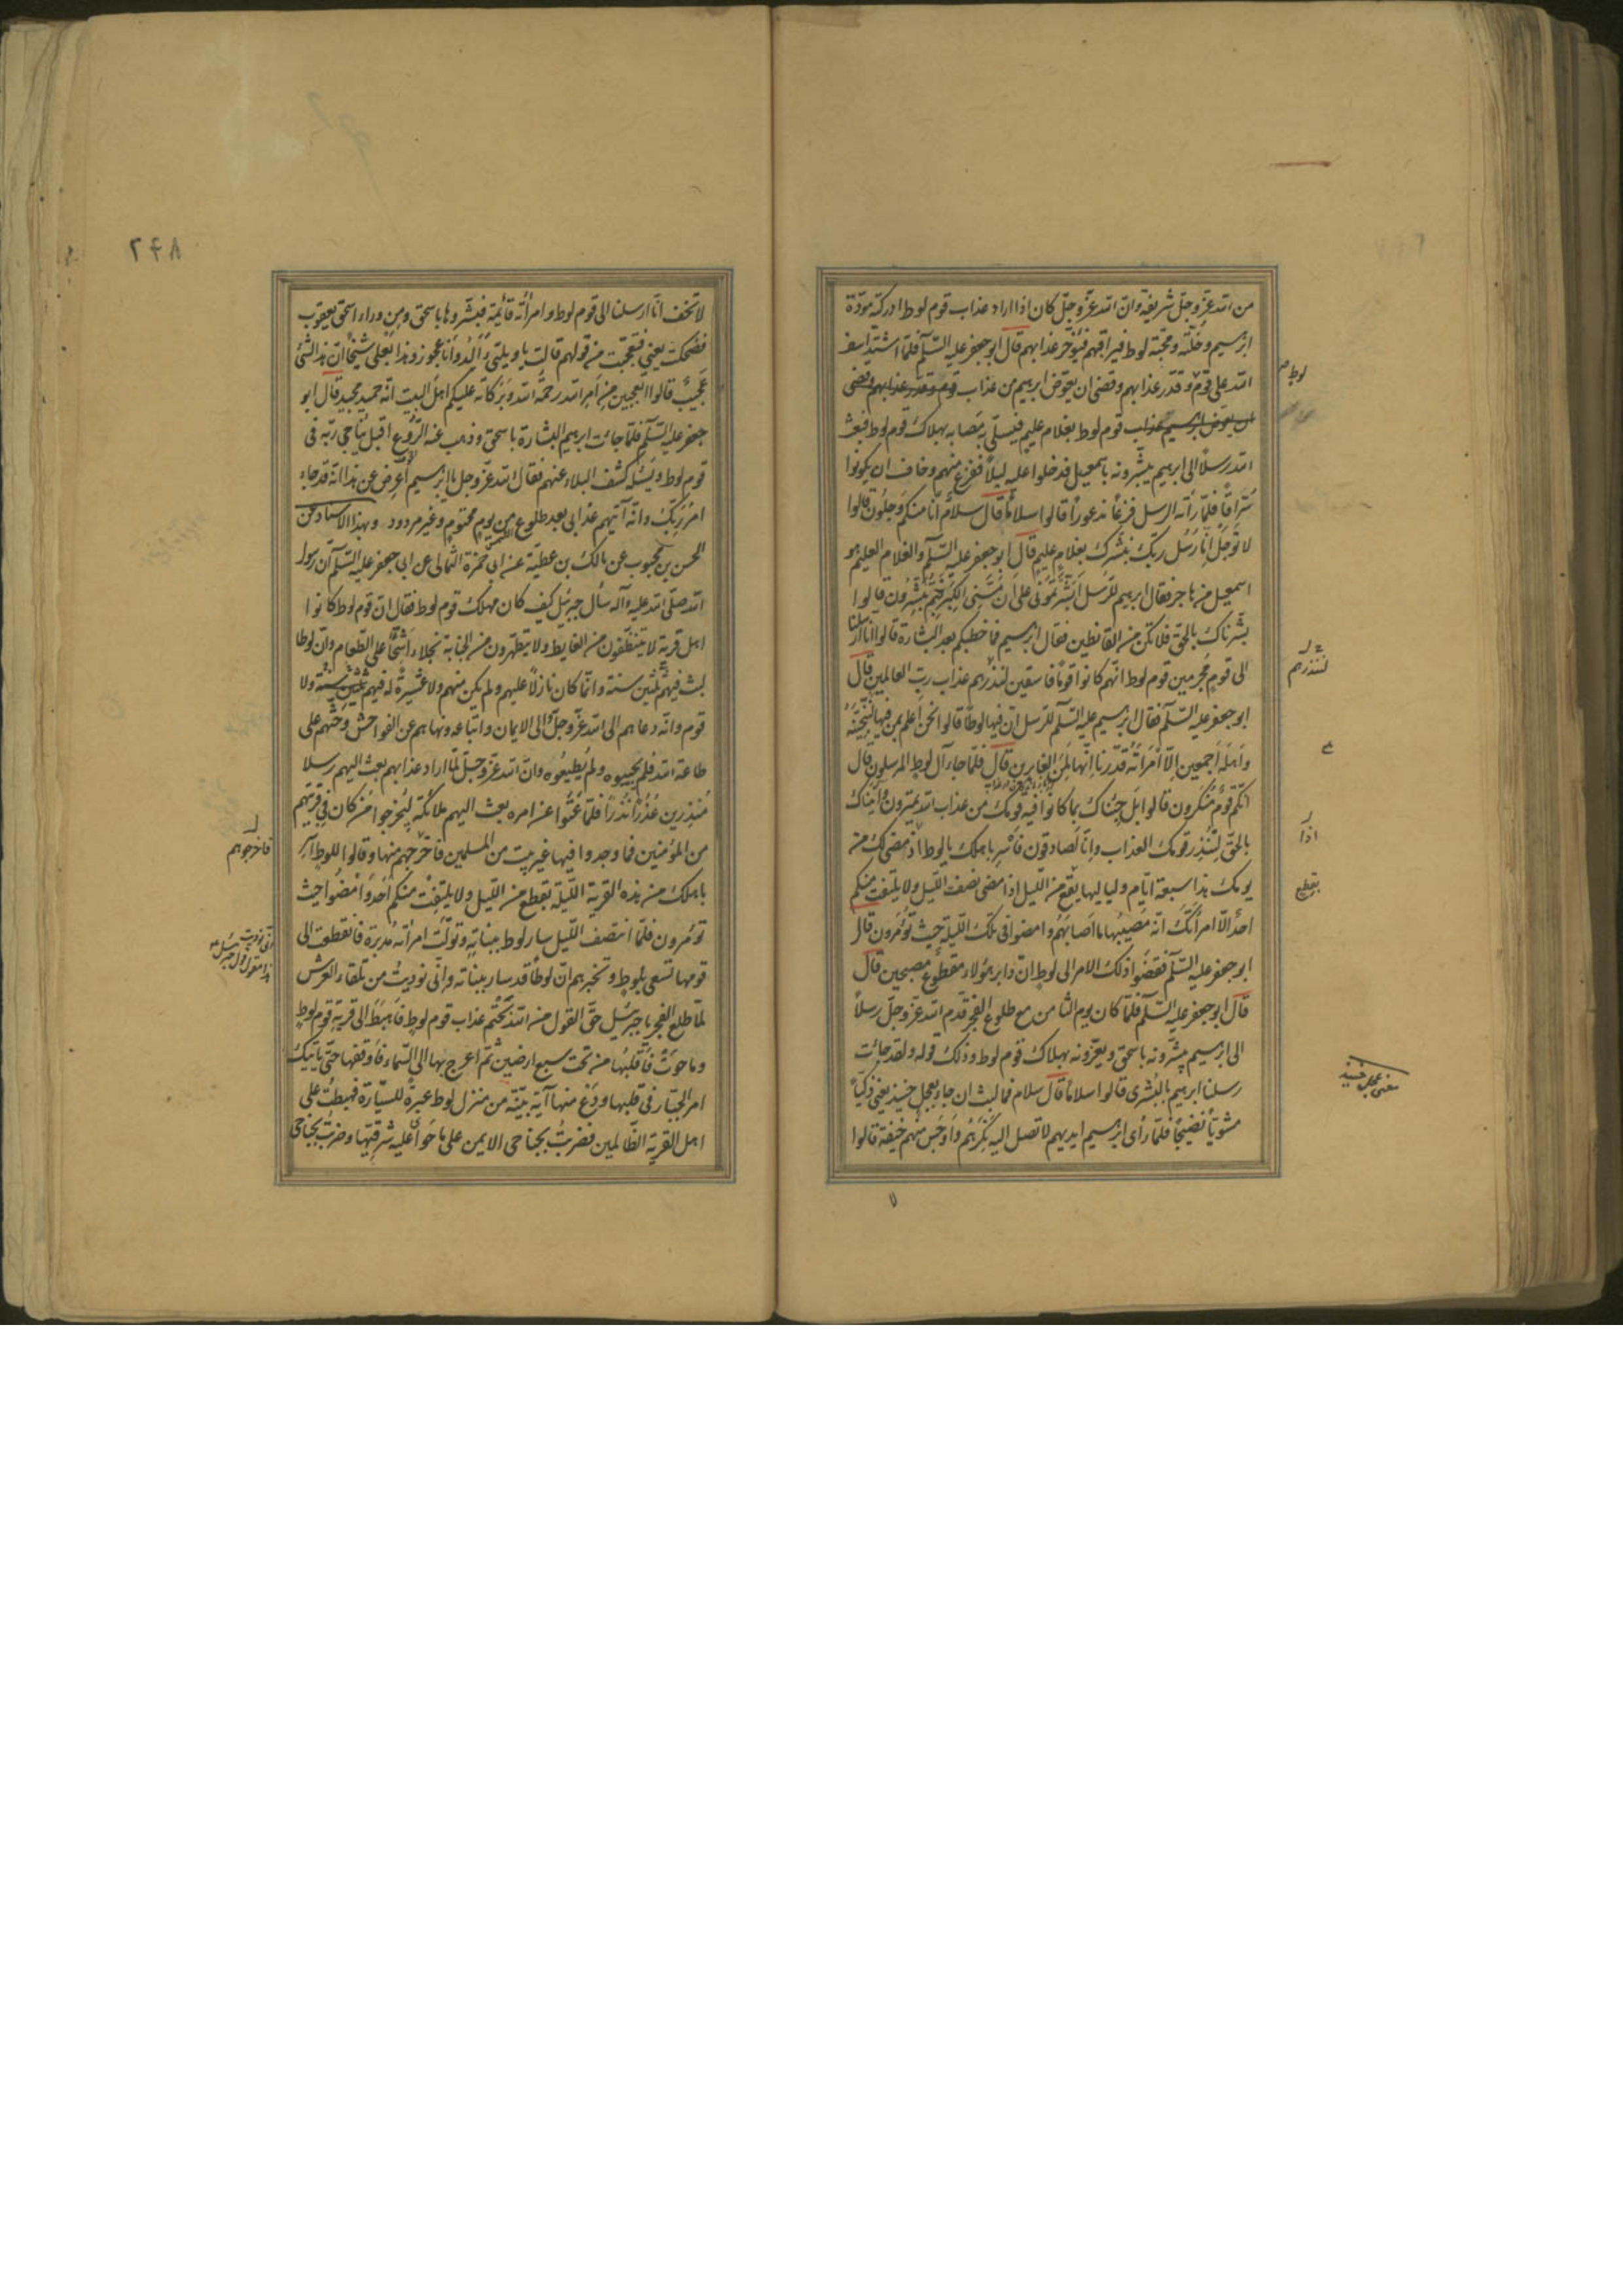 من الله عزّ وجلّ شريفة وان الله عزّ وجلّ كان اذا اراد عذاب قوم لوط ادركته مودّة
ابرهيم وخلّته ومحبّة لوط فيراقبهم فيؤخّر عذابهم قال ابو جعفر عليه السّلم فلمّا اشتدّ اسف
الله على قوم وقدّر عذابهم وقضى ان يعوّض ابرهيم من عذاب قوم وقدر عذابهم وقضى
ان يعوض ابرهيم عذاب قوم لوط بغلام عليم فيسلّى به مصابه بهلاك قوم لوط فبعث
الله رسلا الى ابرهيم يبشّرونه باسمعيل فدخلوا عليه ليلا ففزع منهم وخاف ان يكونوا
سُرّاقا فلمّا رأته الرسل فزعا مذعورا قالوا سلاما قال سلام انّا منكم وجلون قالوا
لا توجل انّا رسل ربّك نبشّرك بغلام عليم قال ابو جعفر عليه السّلم والغلام العليم هو
اسمعيل من هاجر فقال ابرهيم للرّسل ابشّرتموني على ان مسّني الكبر فبم تبشّرون قالوا
بشّرناك بالحقّ فلا تكن من القانطين فقال ابرهيم فما خطبكم بعد البشارة قالوا انّا ارسلنا
الى قوم مجرمين قوم لوط انّهم كانوا قوما فاسقين لننذرهم عذاب ربّ العالمين قال
ابو جعفر عليه السّلم فقال ابرهيم عليه السّلم للرّسل انّ فيها لوطا قالوا نحن اعلم بمن فيها لننجّينّه
واهله اجمعين الّا امرأته قدّرنا انّها لمن الغابرين قال فلمّا جاء آل لوط المرسلون قال
انّكم قوم منكرون قالوا بل جئناك بما كانوا فيه قومك من عذاب الله يمترون وأتيناك
بالحقّ لتنذر قومك العذاب وانّا لصادقون فأسر باهلك يا لوط اذ مضى لك من
يومك هذا سبعة ايّام ولياليها بقطع من اللّيل اذا مضى نصف اللّيل ولا يلتفت منكم
احد الّا امرأتك انّه مصيبها ما اصابهم وامضوا في تلك اللّيلة حيث تؤمرون قال
ابو جعفر عليه السّلم فقضوا ذلك الامر الى لوط انّ دابر هؤلاء مقطوع مصبحين قال
قال ابو جعفر عليه السّلم فلمّا كان يوم الثامن مع طلوع الفجر قدّم الله عزّ وجلّ رسلا
الى ابرهيم يبشّرونه باسحق ويعزّونه بهلاك قوم لوط وذلك قوله ولقد جائت
رسلنا ابرهيم بالبشرى قالوا سلاما قال سلام فما لبث ان جاء بعجل حنيذ يعني ذكيّا
مشويّا نضيجا فلمّا رأى ابرهيم ايديهم لا تصل اليه نكرهم واوجس منهم خيفة قالوا
لوط
لننذرهم
اذا
بقطع
معنى عجل حنيذ
٢٤٨
لا تخف انّا ارسلنا الى قوم لوط وامرأته قائمة فبشّروها باسحق ومن وراء اسحق يعقوب
فضحكت يعني فتعجّبت من قولهم قالت يا ويلتي ءالد وانا عجوز وهذا بعلي شيخا انّ هذا لشئ
عجيب قالوا اتعجبين من امر الله رحمة الله وبركاته عليكم اهل البيت انّه حميد مجيد قال ابو
جعفر عليه السّلم فلمّا جائت ابرهيم البشارة باسحق وذهب عنه الرّوع اقبل يناجي ربّه في
قوم لوط ويسئله كشف البلاء عنهم فقال الله عزّ وجل يا ابرهيم اعرض عن هذا انّه قد جاء
امر ربّك وانّه آتيهم عذابي بعد طلوع الشمس من يوم محتوم وغير مردود وبهذا الاسناد عن
الحسن بن محبوب عن مالك بن عطيّة عن ابي حمزة الثمالي عن ابي جعفر عليه السّلم انّ رسول
الله صلّى الله عليه وآله سأل جبرئيل كيف كان مهلك قوم لوط فقال انّ قوم لوط كانوا
اهل قرية لا يتنظّفون من الغايط ولا يتطهّرون من الجنابة بخلاء اشحّاء على الطّعام وانّ لوطا
لبث فيهم ثلثين سنة وانّما كان نازلا عليهم ولم يكن منهم ولا عشيرة له فيهم ثلثين سنة ولا
قوم وانّه دعاهم الى الله عزّ وجلّ والى الايمان واتّباعه ونهاهم عن الفواحش وحثّهم على
طاعة الله فلم يجيبوه ولم يطيعوه وانّ الله عزّ وجلّ لمّا اراد عذابهم بعث اليهم رسلا
منذرين عذرا نذرا فلمّا عتوا عن امره بعث اليهم ملائكة ليخرجوا من كان في قريتهم
من المؤمنين فما وجدوا فيها غير بيت من المسلمين فاخرجهم منها وقالوا للوط اسر
باهلك من هذه القرية اللّيلة بقطع من اللّيل ولا يلتفت منكم احد وامضوا حيث
تؤمرون فلمّا انتصف اللّيل سار لوط ببناته وتولّت امرأته مدبرة فانقطعت الى
قومها تسعى بلوط وتخبرهم انّ لوطا قد سار ببناته وانّي نوديت من تلقاء العرش
لمّا طلع الفجر يا جبرئيل حقّ القول من الله بحتم عذاب قوم لوط فاهبط الى قرية قوم لوط
وما حوت فاقلبها من تحت سبع ارضين ثمّ اعرج بها الى السّماء فاوقفها حتّى ياتيك
امر الجبّار في قلبها ودع منها آية بيّنة من منزل لوط عبرة للسيّارة فهبطت على
اهل القرية الظّالمين فضربت بجناحي الايمن على ما حوى عليه شرقيّها وضربت بجناحي
فاخرجوهم
انّي نوديت
هذا مقول قول جبرئيل